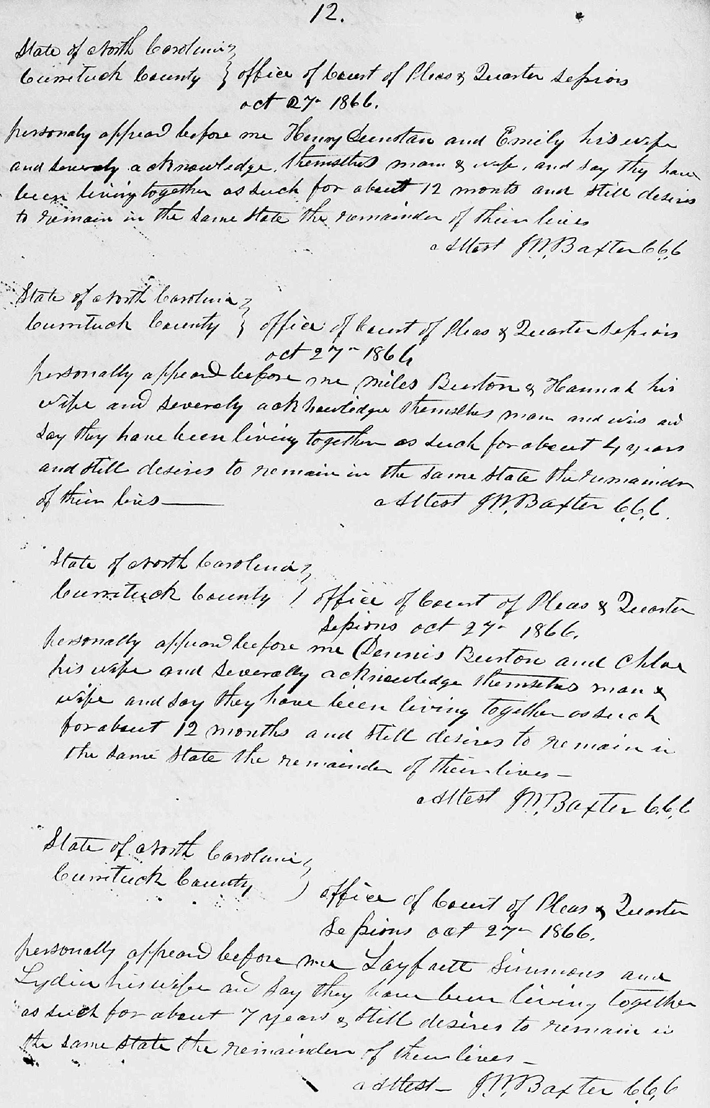 12.
State of North Carolina
Currituck County } office of Court of Pleas & Quarter Sessions
oct 27th 1866.
personaly appeard before me Henry Dunstan and Emily his wife
and severely acknowledge themselves man & wife, and say they have
been living together as such for about 12 months and still desires
to remain in the same state the remainder of their lives
Attest J.W. Baxter C.C.C
State of North Carolina
Currituck County } office of Court of Pleas & Quarter Sessions
oct 27th 1866
personally appeard before me Miles Burton & Hannah his
wife and severely acknowledge themselves man and wife and
say they have been living together as such for about 4 years
and still desires to remain in the same state the remainder
of their lives — Attest J.W. Baxter C.C.C.
State of North Carolina
Currituck County } office of Court of Pleas & Quarter
Sessions oct 27th 1866.
personally appeard before me Dennis Burton and Chloe
his wife and severally acknowledge themselves man &
wife and say they have been living together as such
for about 12 months and still desires to remain in
the same state the remainder of their lives —
Attest J.W. Baxter C.C.C
State of North Carolina
Currituck County } office of Court of Pleas & Quarter
Sessions oct 27th 1866.
personally appeard before me Layfaett Simmons and
Lydia his wife and say they have been living together
as such for about 7 years & still desires to remain in
the same state the remainder of their lives —
Attest — J.W. Baxter C.C.C